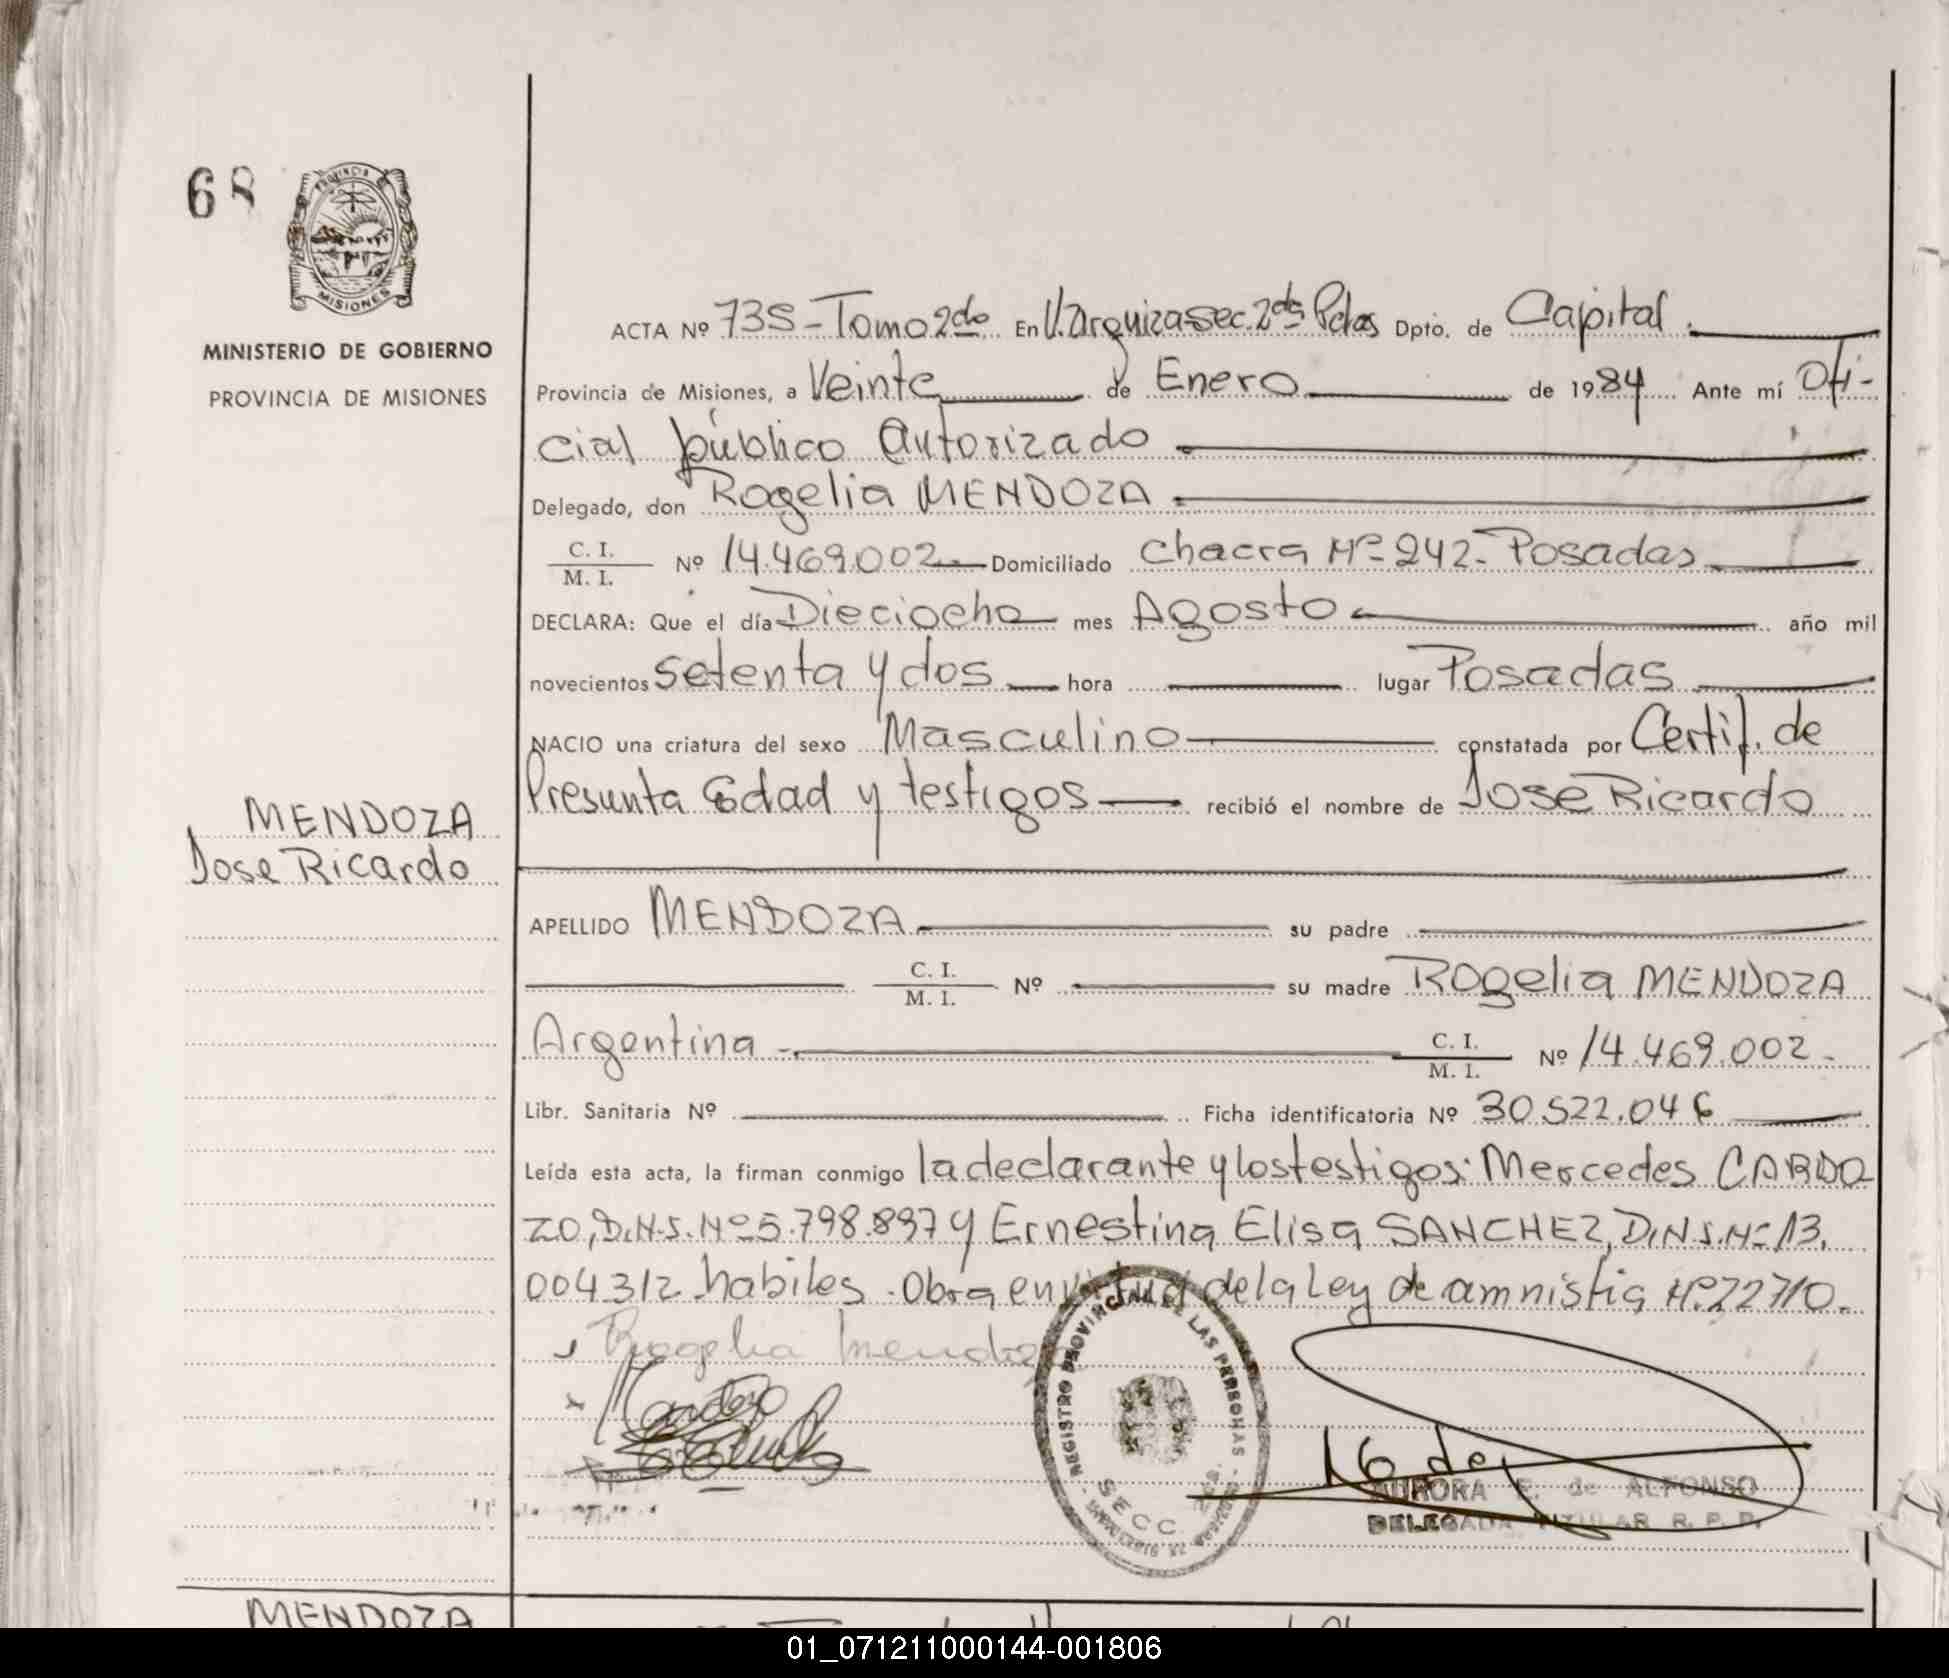 68
PROVINCIA
MISIONES
MINISTERIO DE GOBIERNO
PROVINCIA DE MISIONES
ACTA Nº 735 - Tomo 2do En V. Urquiza sec. 2da Pdas Dpto. de Capital.
Provincia de Misiones, a Veinte de Enero de 1984 Ante mí Ofi-
cial público Autorizado
Delegado, don Rogelia MENDOZA
C. I.
M. I. Nº 14.469.002 Domiciliado Chacra Nº 242- Posadas
DECLARA: Que el día Dieciocho mes Agosto año mil
novecientos setenta y dos hora lugar Posadas
NACIO una criatura del sexo Masculino constatada por Certif. de
Presunta Edad y testigos recibió el nombre de Jose Ricardo
MENDOZA
Jose Ricardo
APELLIDO MENDOZA su padre
C. I.
M. I. Nº su madre Rogelia MENDOZA
Argentina - C. I.
M. I. Nº 14.469.002-
Libr. Sanitaria Nº Ficha identificatoria Nº 30.522.046
Leída esta acta, la firman conmigo la declarante y los testigos: Mercedes CARDO
ZO, D.N.I. Nº 5.798.897 y Ernestina Elisa SANCHEZ, D.N.I. Nº 13.
004312 habiles. Obra en virtud de la Ley de amnistia Nº 22710.
Rogelia Mendoza
REGISTRO PROVINCIAL DE LAS PERSONAS
SECC.
AURORA E. de ALFONSO
DELEGADA TITULAR R. P. P.
MENDOZA
01_071211000144-001806